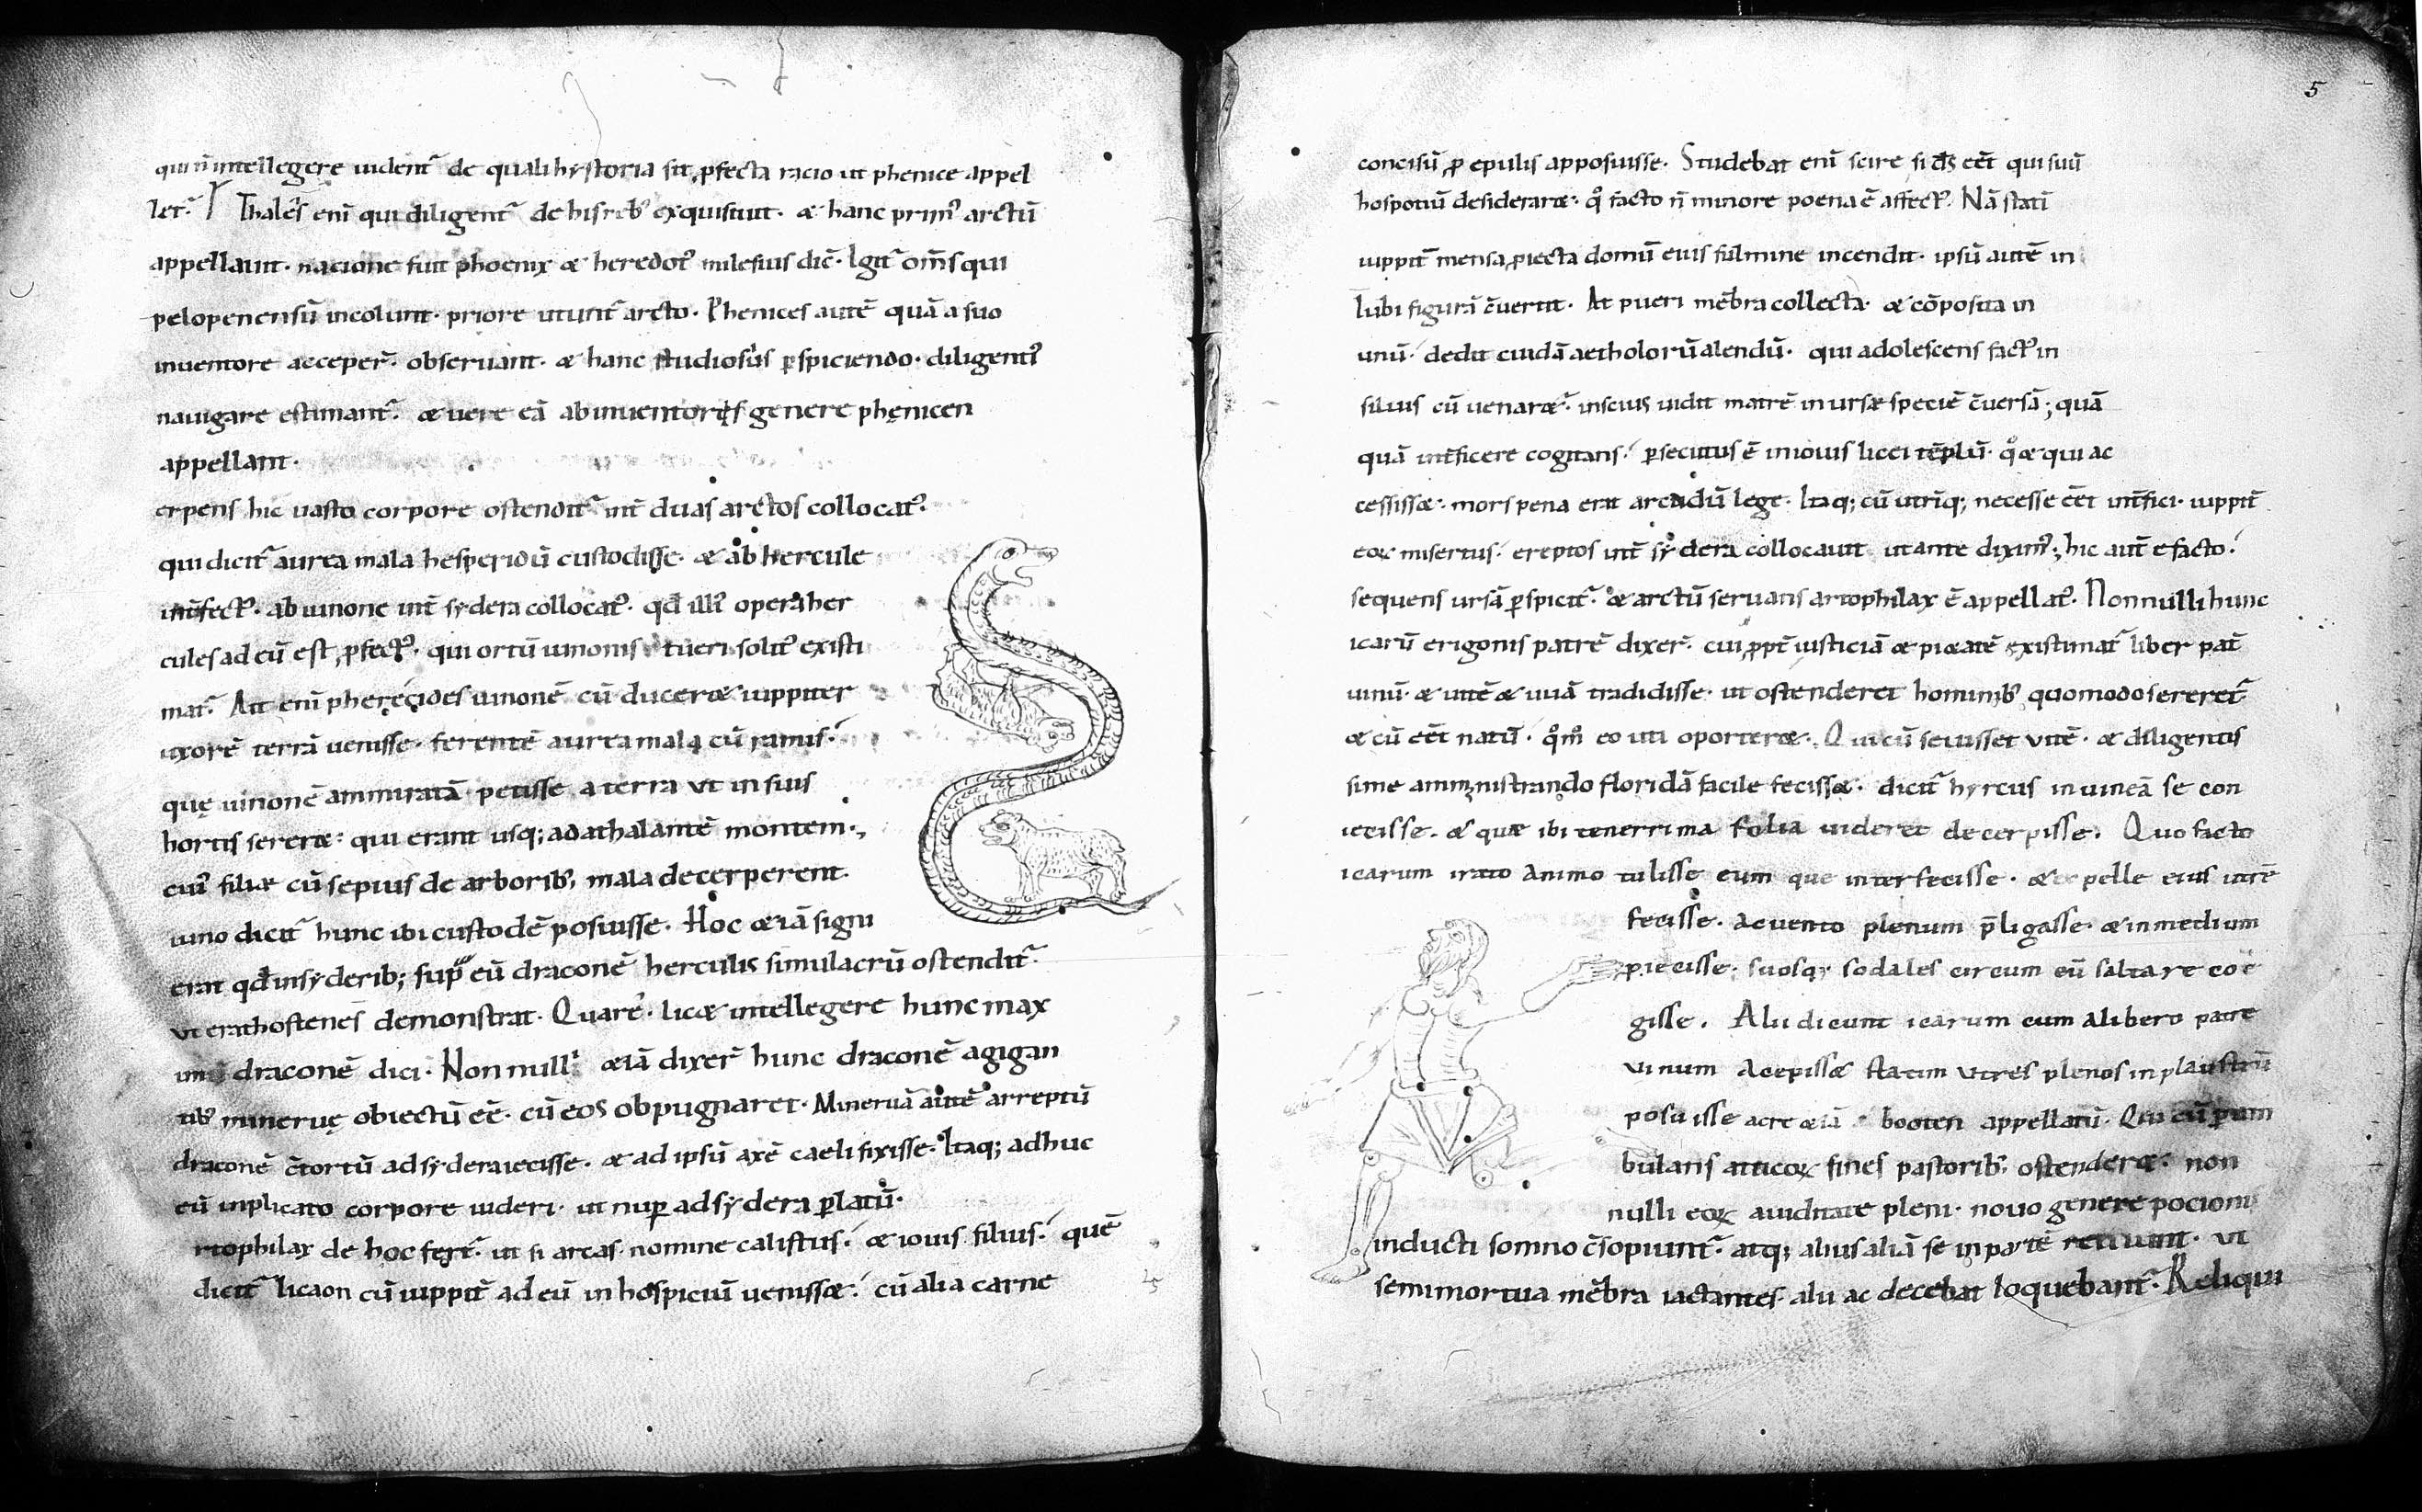 qui ñ intellegere uident᷑ de quali hystoria sit pfecta racio ut phenice appel
let᷑. Thales enī qui diligent᷑ de his reb; exquisiuit. & hanc prim᷒ arctū
appellauit. nacione fuit phoenix & heredot᷒ milesius dic̄. Igit᷑ om̄s qui
peloponensū incolunt. priore utunt᷑ arcto. Phenices autē quā a suo
inuentore acceper̄. obseruant. & hanc studiosius pspiciendo. diligenti᷒
nauigare estimant᷑. & uere eā ab inuentoris genere phenicen
appellant.
erpens hic uasto corpore ostendit᷑ int̄ duas arctos collocat᷒.
qui dicit᷑ aurea mala hesperidū custodisse. & ab hercule
int̄fect᷒. ab uinone int̄ sydera collocat᷒. qd̄ illi᷒ opera her
cules ad eū est pfect᷒. qui ortū uinonis tueri solit᷒ existi
mat᷑. Ait enī pherecides uinonē cū ducer& iuppiter
uxorē terrā uenisse. ferentē aurea mala cū ramis.
quę uinonē ammiratā petisse a terra ut in suis
hortis serer&. qui erant usq; ad athalantē montem.
cui᷒ filiæ cū sepius de arborib; mala decerperent.
iuno dicit᷑ hunc ibi custodē posuisse. Hoc &iā signi
erat qd̄ in syderib; sup eū draconē herculis simulacrū ostendit᷑.
ut erathostenes demonstrat. Quare. lic& intellegere hunc max
ime draconē dici. Nonnulli &iā dixer̄ hunc draconē a gigan
tib᷒ mineruę obiectū ēē. cū eos obpugnaret. Mineruā autē arreptū
draconē c̄tortū ad sydera iecisse. & ad ipsū axē caeli fixisse. Itaq; adhuc
eū inplicato corpore uideri. ut nup ad sydera platū.
rtophilax de hoc fert᷑. ut si arcas nomine calistus. & iouis filius. quē
dicit᷑ licaon cū iuppit̄ ad eū in hospiciū ueniss&. cū alia carne
5
concisū p epulis apposuisse. Studebat enī scire si d̄s eēt qui suū
hospotiū desiderar&. q° facto ñ minore poena ē affect᷒. Nā stati
iuppit̄ mensa piecta domū eius fulmine incendit. ipsū autē in
lubi figurā c̄uertit. At pueri mēbra collecta. & cōposita in
unū. dedit cuidā aetholorū alendū. qui adolescens fact᷒ in
siluis cū uenar&᷑. inscius uidit matrē in ursæ speciē c̄uersā; quā
quā int̄ficere cogitans. psecutus ē in iouis licei tēplū. q° & qui ac
cessiss&. mors pena erat arcadū lege. Itaq; cū utrīq; necesse eēt int̄fici. iuppit̄
eoꝝ misertus. ereptos int̄ sydera collocauit ut ante dixim᷒; hic aut̄ e facto.
sequens ursā pspicit᷑. & arctū seruans artophilax ē appellat᷒. Nonnulli hunc
icarū erigonis patrē dixer̄. cui ppt̄ iusticiā & pi&atē existimat᷑ liber pat̄
uinū. & uitē & uuā tradidisse. ut ostenderet hominib; quomodo sereret᷑
& cū eēt natū. q°m° eo uti oporter&. Qui cū seuisset uitē. & diligentis
sime amministrando floridā facile feciss&. dicit᷑ hyrcus in uineā se con
iecisse. & quæ ibi tenerrima folia uideret decerpisse. Quo facto
icarum irato animo tulisse eum que interfecisse. & pelle eius utrē
fecisse. ac uento plenum p̄ligasse. & in medium
piecisse. suosq; sodales circum eū saltare coe
gisse. Alii dicunt icarum eum a libero patre
uinum acepiss& statim utres plenos in plaustrū
posuisse acre &iā booten appellatū. Qui cū pam
bulans atticoꝝ fines pastorib; ostender&. non
nulli eoꝝ auiditate pleni. nouo genere pocionis
inducti somno c̄sopiunt᷑. atq; alius aliā se in partē reiciunt. ut
semimortua mēbra iactantes. alii ac decebat loquebant᷑. Reliqui